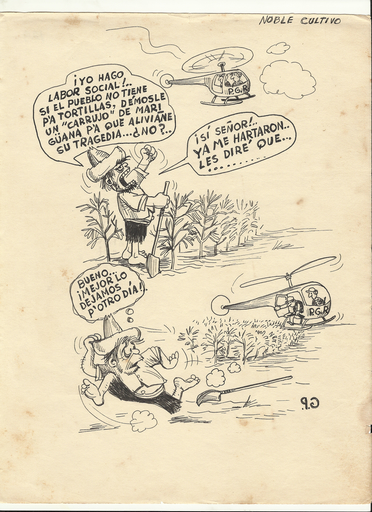 NOBLE CULTIVO
¡YO HAGO
LABOR SOCIAL!..
SI EL PUEBLO NO TIENE
P'A TORTILLAS, DÉMOSLE
UN "CARRUJO" DE MARI
GÜANA P'A QUE ALIVIANE
SU TRAGEDIA...¿NO?..
P.G.R.
¡SI SEÑOR!..
YA ME HARTARON..
LES DIRE QUE...
..........
BUENO,
¡MEJOR LO
DEJAMOS
P'OTRO DÍA!
P.G.R.